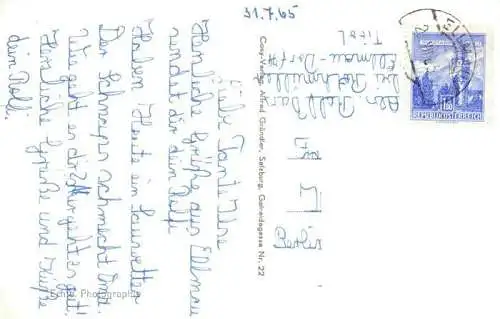 31.7.65
Liebe Tante Ilse
Herzliche Grüße aus Ellmau
sendet dir dein Rolf
Haben Heute ein Sauwetter
Der Schnaps schmeckt Oma.
Wie geht es dir? Mir geht es gut!
Herzliche Grüße und Küße
dein Rolf.
Echte Photographie
Cosy-Verlag Alfred Gründler, Salzburg, Getreidegasse Nr. 22
Abs. Rolf
bei
Ellmau-Dorf
Tirol
Berlin
REPUBLIK ÖSTERREICH